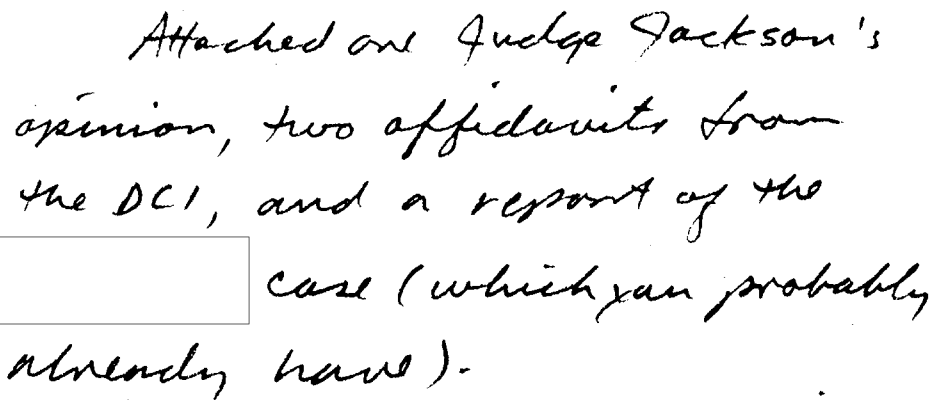 Attached are Judge Jackson's
opinion, two affidavits from
the DCI, and a report of the
case (which you probably
already have).